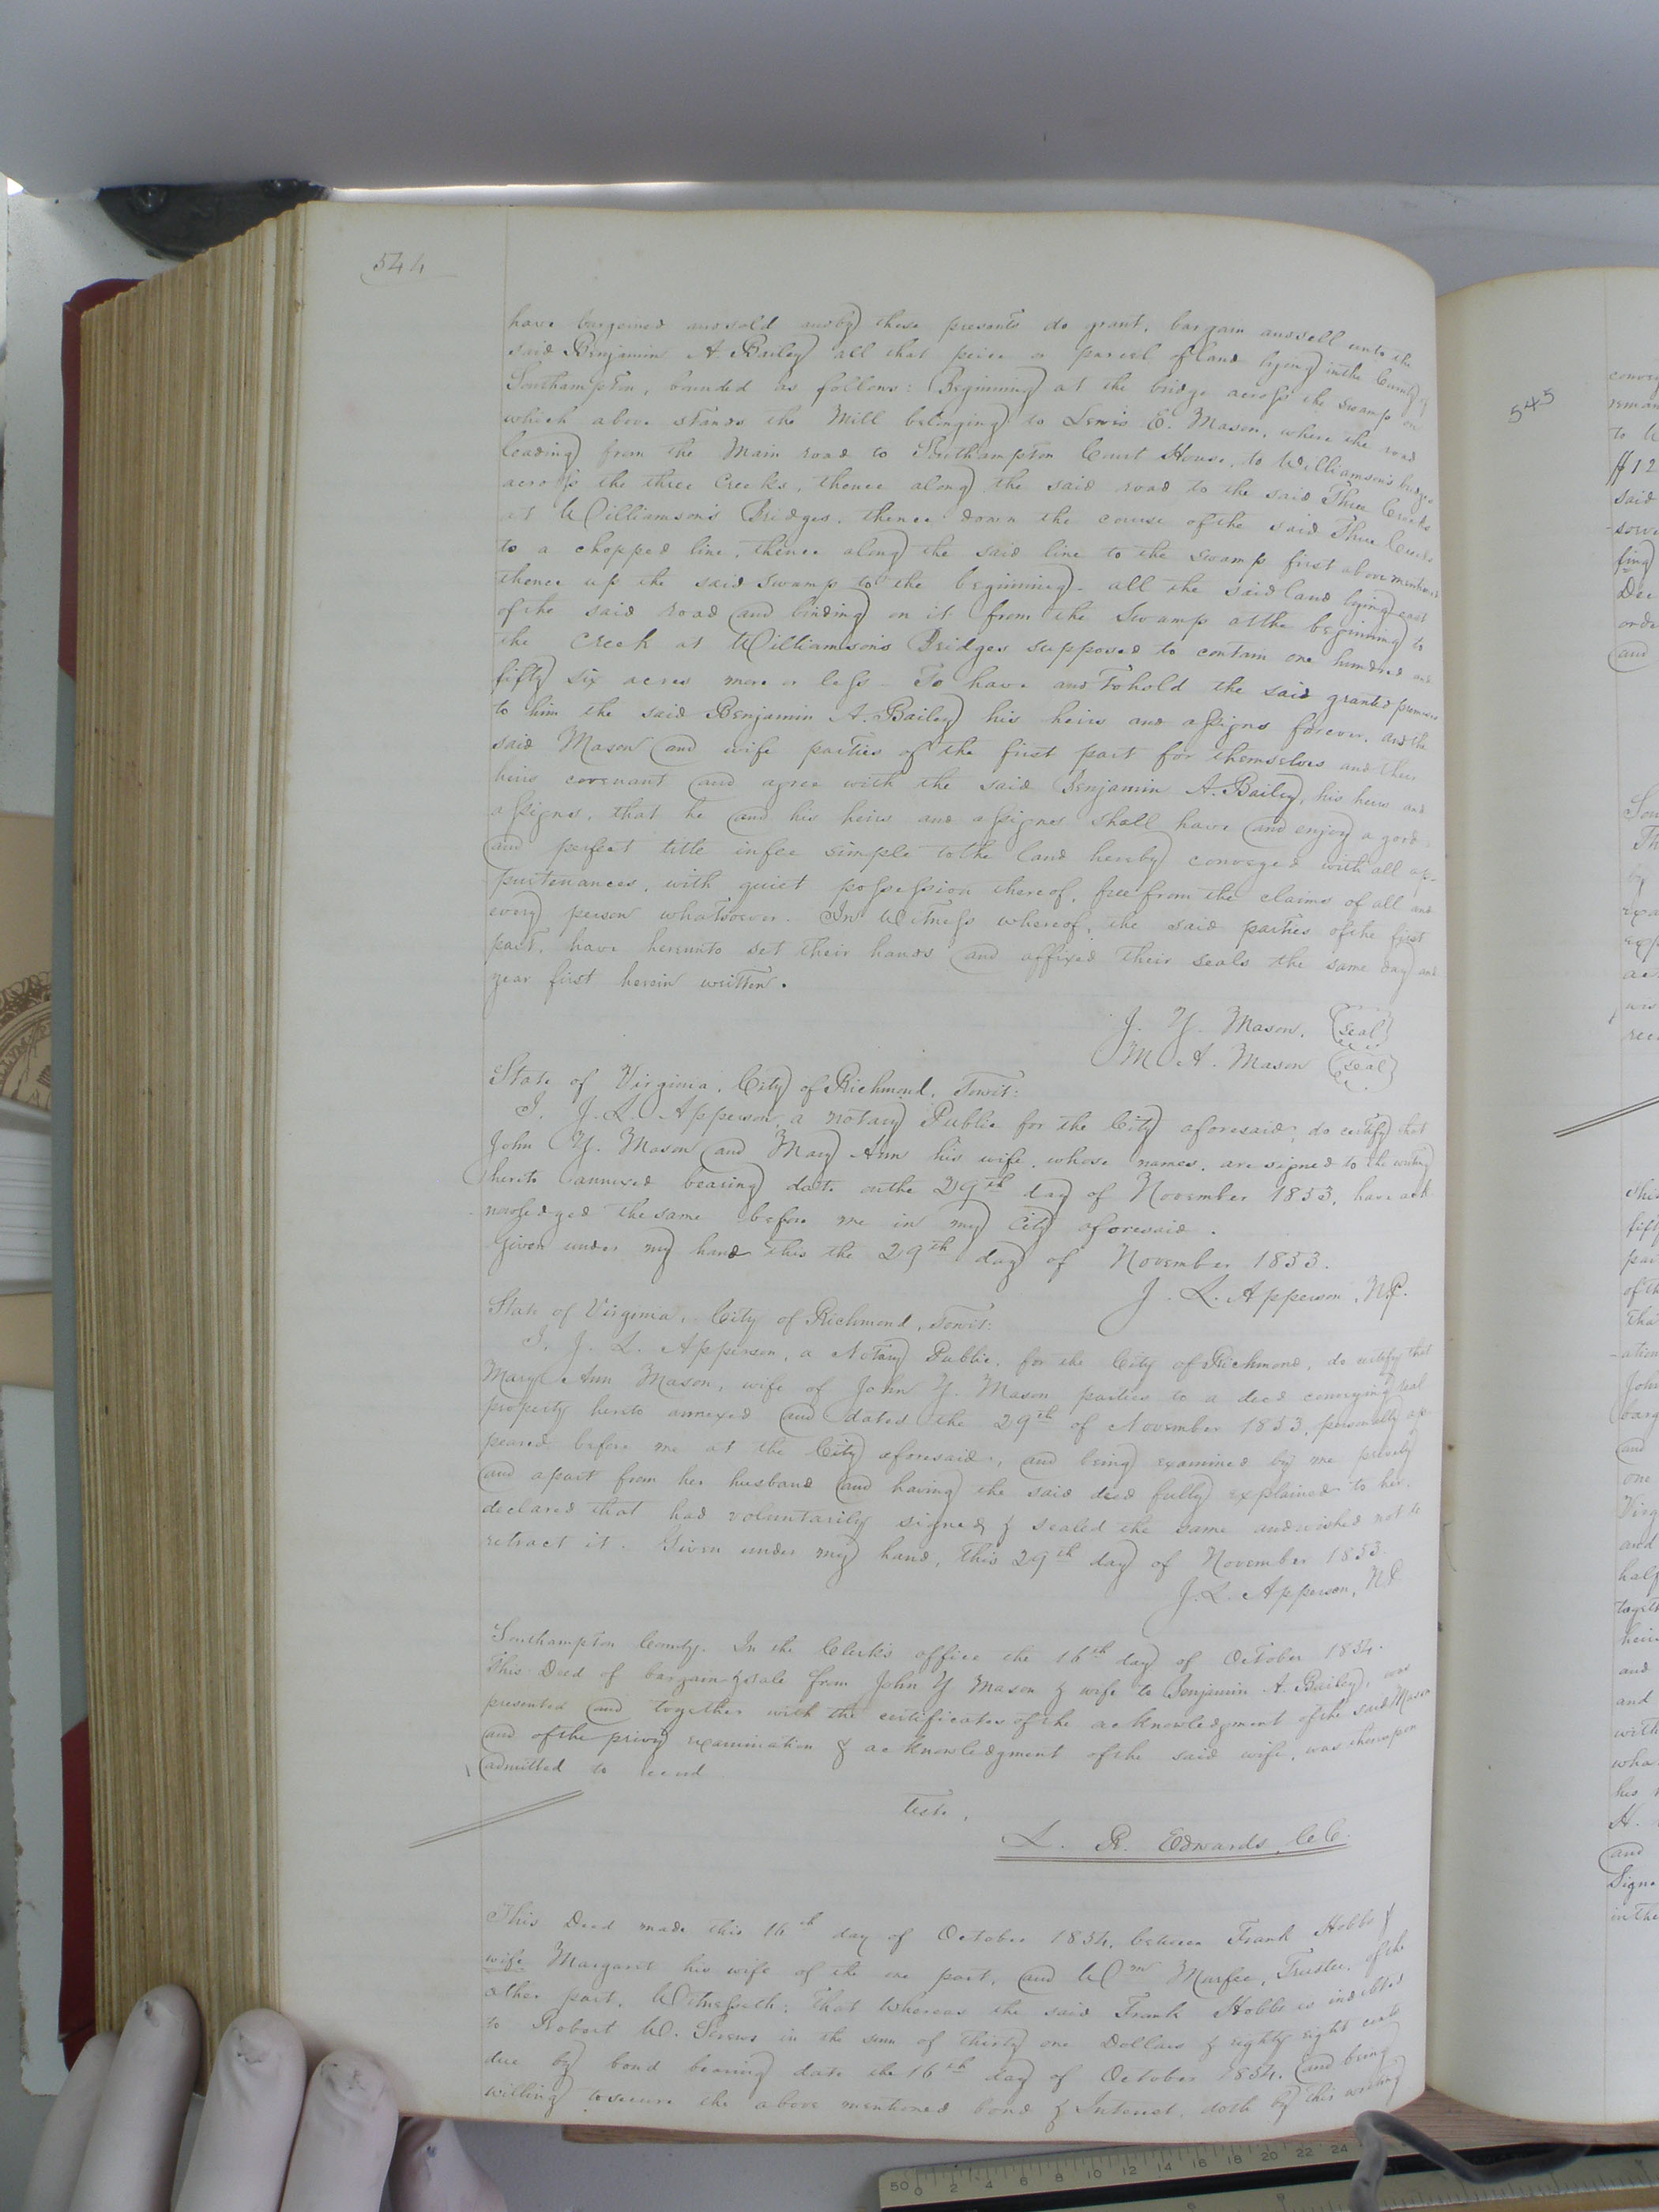 544
have bargained and sold and by these presents do grant, bargain and sell unto the
said Benjamin A. Bailey all that peice or parcel of land lying in the County of
Southampton, bounded as follows: Beginning at the bridge across the swamp on
which above stands the Mill belonging to Lewis E. Mason, where the road
leading from the Main road to Southampton Court House, to Williamson's bridges
across the three Creeks, thence along the said road to the said Three Creeks
at Williamson's Bridges, thence down the course of the said Three Creeks
to a chopped line, thence along the said line to the swamp first above mentioned
thence up the said swamp to the beginning - all the said land lying east
of the said road and binding on it from the Swamp at the beginning to
the Creek at Williamson's Bridges supposed to contain one hundred and
fifty six acres more or less - To have and to hold the said granted premises
to him the said Benjamin A. Bailey his heirs and assigns forever, and the
said Mason and wife parties of the first part for themselves and their
heirs covenant and agree with the said Benjamin A. Bailey, his heirs and
assigns, that he and his heirs and assigns shall have and enjoy a good
and perfect title in fee simple to the land hereby conveyed with all ap-
purtenances, with quiet possession thereof, free from the claims of all and
every person whatsoever. In Witness whereof, the said parties of the first
part, have hereunto set their hands and affixed their seals the same day and
year first herein written.
J. Y. Mason. {seal}
M. A. Mason {seal}
State of Virginia, City of Richmond, Towit:
I. J. L. Apperson, a notary Public for the City aforesaid, do certify that
John Y. Mason and Mary Ann his wife, whose names, are signed to the writing
hereto annexed bearing date on the 29th day of November 1853, have ack
nowledged the same before me in my City aforesaid.
Given under my hand this the 29th day of November 1853.
J. L. Apperson, N.P.
State of Virginia, City of Richmond, Towit:
I, J. L. Apperson, a Notary Public, for the City of Richmond, do certify that
Mary Ann Mason, wife of John Y. Mason parties to a deed conveying real
property hereto annexed and dated the 29th of November 1853, personally ap
peared before me at the City aforesaid, and being examined by me privily
and apart from her husband and having the said deed fully explained to her,
declared that had voluntarily signed & sealed the same and wished not to
retract it. Given under my hand, this 29th day of November 1853.
J. L. Apperson, N.P.
Southampton County. In the Clerk's office the 16th day of October 1854.
This Deed of bargain & sale from John Y Mason & wife to Benjamin A. Bailey, was
presented and together with the certificates of the acknowledgment of the said Mason
and of the privy examination & acknowledgment of the said wife, was thereupon
admitted to record
Teste,
L. R. Edwards, C.C.
This Deed made this 16th day of October 1854, between Frank Hobbs &
wife Margaret his wife of the one part, and Wm Murfee, Trustee, of the
other part, Witnesseth; That Whereas the said Frank Hobbs is indebted
to Robert W. Screws in the sum of Thirty one Dollars & eighty eight cents
due by bond bearing date the 16th day of October 1854, and being
willing to secure the above mentioned bond & Interest, doth by this writing
545
$12
said
Dec
and
one
and
half
and
and
with
his
H.
and
in the